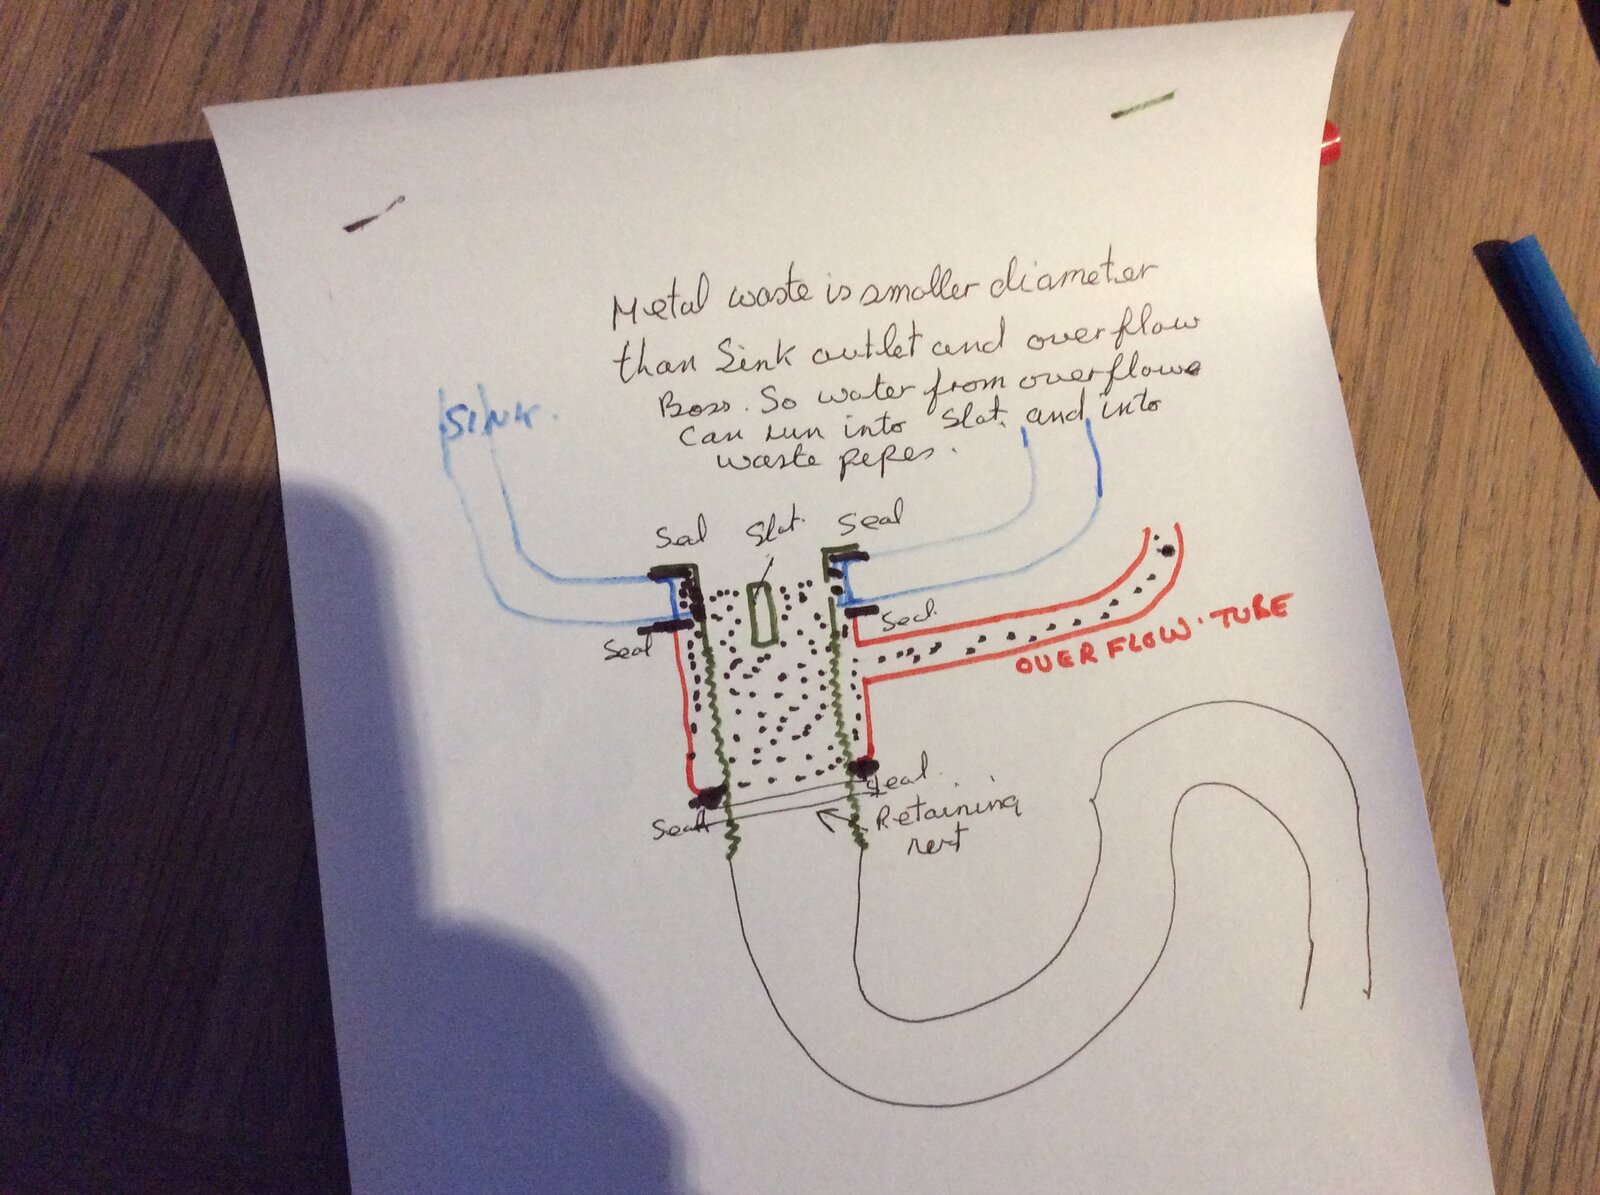 Metal waste is smaller diameter
than Sink outlet and overflow
Boss. So water from overflowe
Can run into Slat. and into
waste pepes.
SINK.
Seal
Slat.
Seal
Seal
Seal.
OVER FLOW. TUBE
Seal
Seal
Retaining
nert